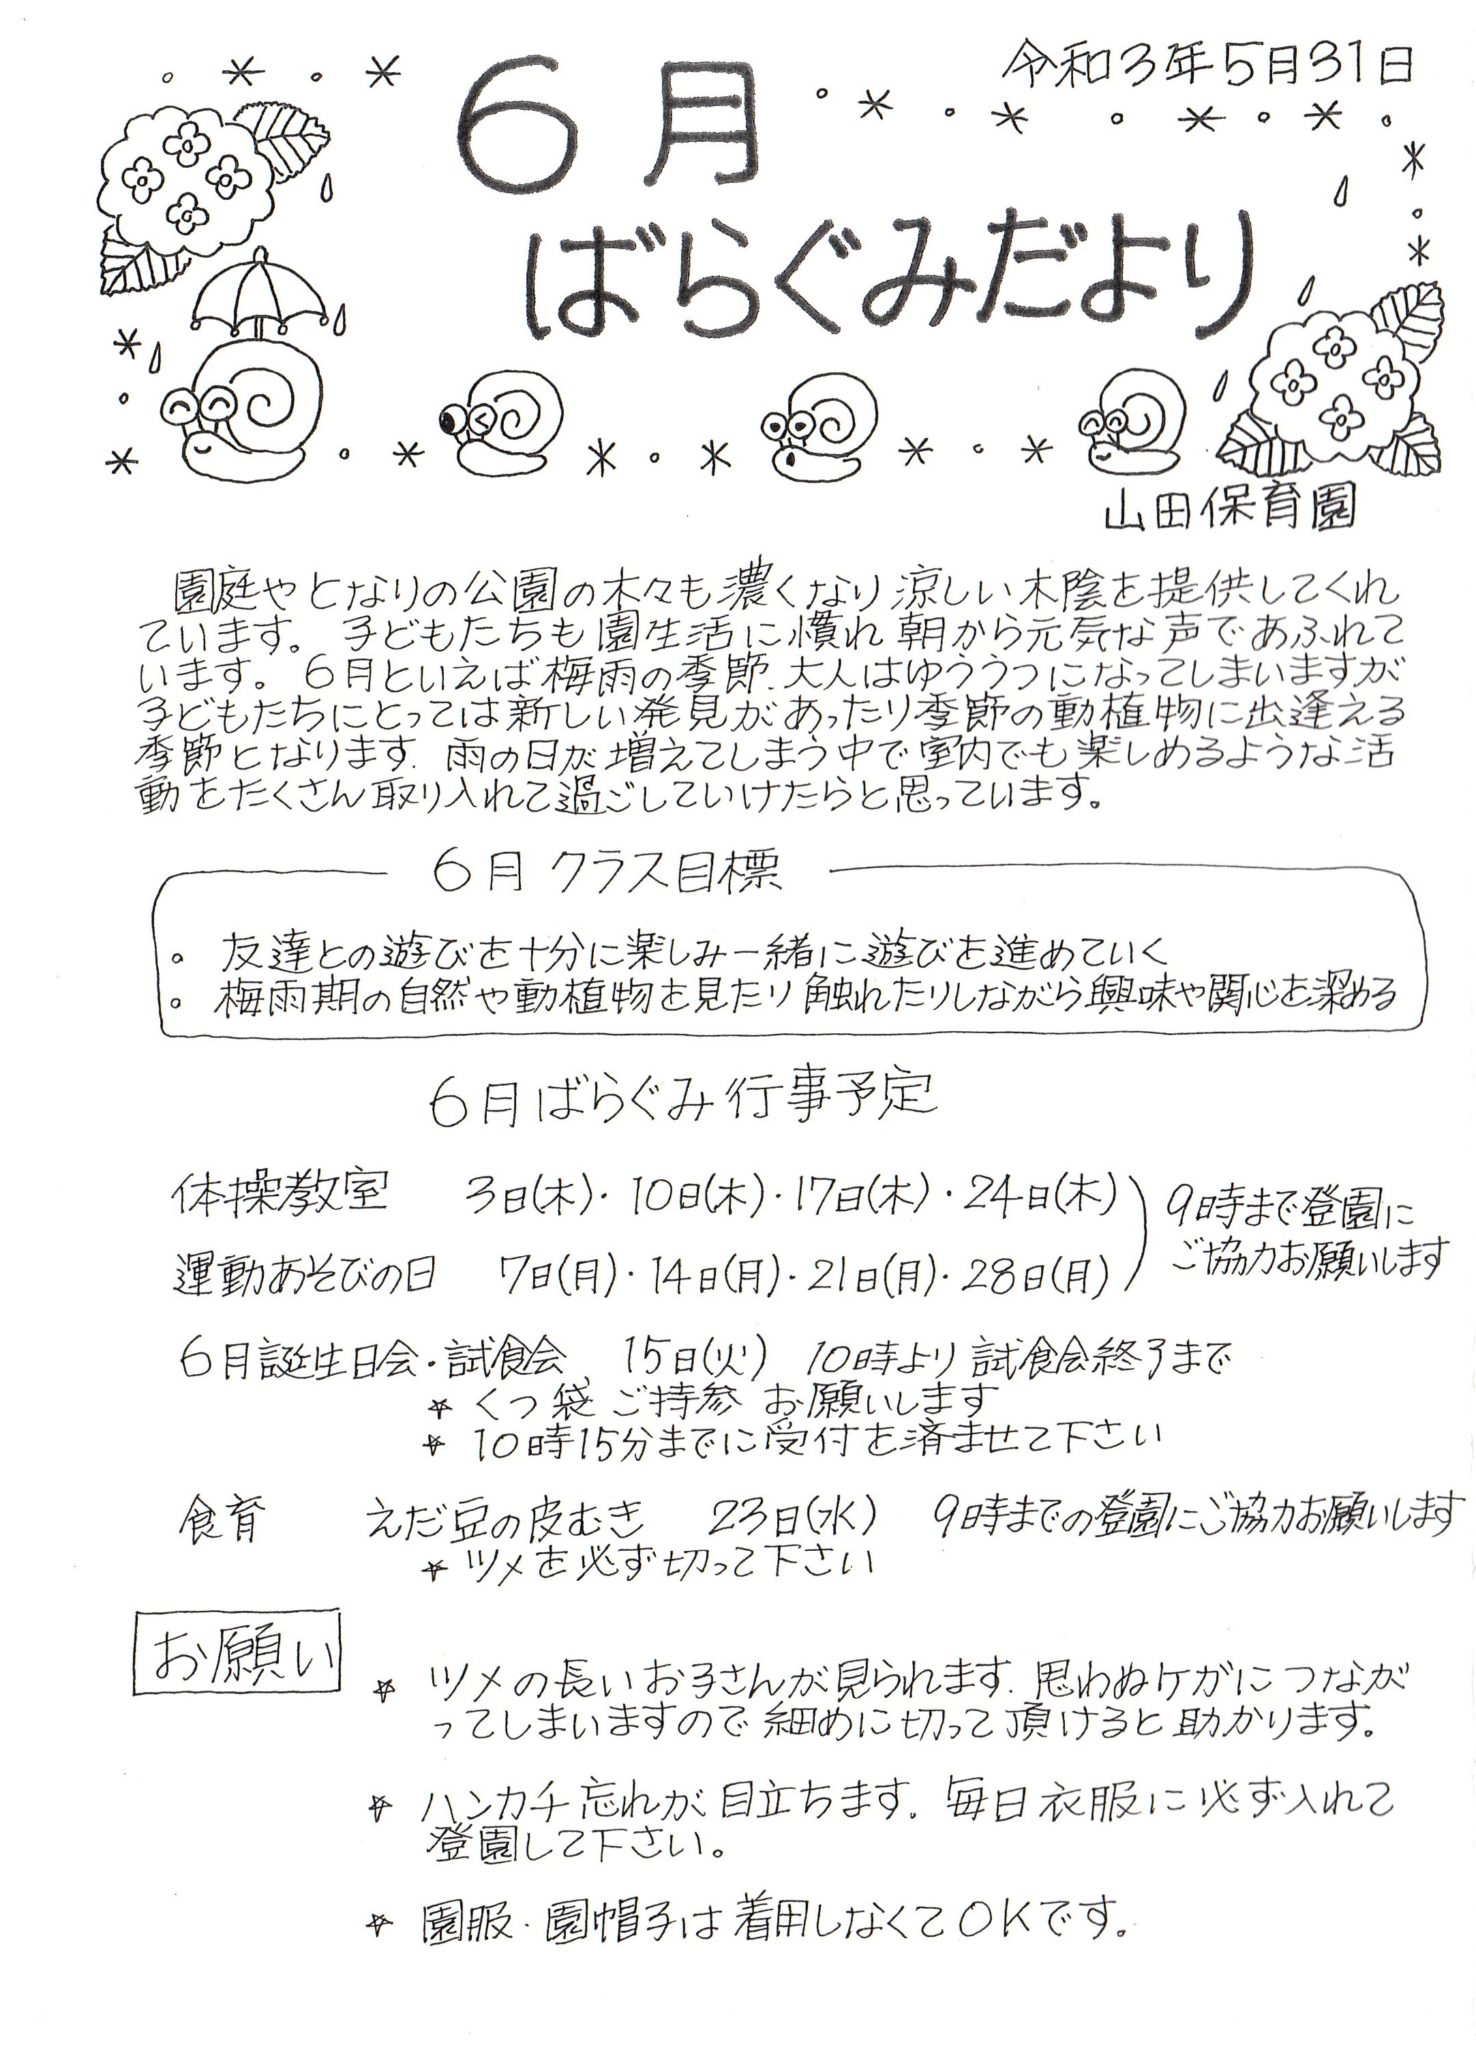 令和3年5月31日
6月
ばらぐみだより
山田保育園
園庭やとなりの公園の木々も濃くなり涼しい木陰を提供してくれ
ています。子どもたちも園生活に慣れ朝から元気な声であふれて
います。6月といえば梅雨の季節、大人はゆううつになってしまいますが
子どもたちにとっては新しい発見があったり季節の動植物に出逢える
季節となります。雨の日が増えてしまう中で室内でも楽しめるような活
動をたくさん取り入れて過ごしていけたらと思っています。
6月クラス目標
。友達との遊びを十分に楽しみ一緒に遊びを進めていく
。梅雨期の自然や動植物を見たり触れたりしながら興味や関心を深める
6月ばらぐみ行事予定
体操教室 3日(木)・10日(木)・17日(木)・24日(木)
運動あそびの日 7日(月)・14日(月)・21日(月)・28日(月)
9時まで登園に
ご協力お願いします
6月誕生日会・試食会、15日(火) 10時より試食会終了まで
☆くつ袋ご持参お願いします
☆10時15分までに受付を済ませて下さい
食育 えだ豆の皮むき 23日(水) 9時までの登園にご協力お願いします
☆ツメを必ず切って下さい
お願い
☆ツメの長いお子さんが見られます。思わぬケガにつなが
ってしまいますので細めに切って頂けると助かります。
☆ハンカチ忘れが目立ちます。毎日衣服に必ず入れて
登園して下さい。
☆園服・園帽子は着用しなくてOKです。